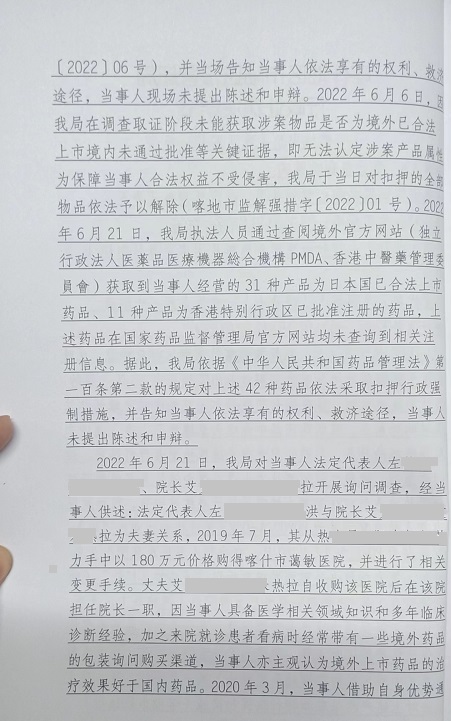 〔2022〕06 号），并当场告知当事人依法享有的权利、救济
途径，当事人现场未提出陈述和申辩。2022 年 6 月 6 日，因
我局在调查取证阶段未能获取涉案物品是否为境外已合法
上市境内未通过批准等关键证据，即无法认定涉案产品属性
为保障当事人合法权益不受侵害，我局于当日对扣押的全部
物品依法予以解除（喀地市监解强措字〔2022〕01 号）。2022
年 6 月 21 日，我局执法人员通过查阅境外官方网站（独立
行政法人医薬品医療機器総合機構 PMDA、香港中醫藥管理委
員會）获取到当事人经营的 31 种产品为日本国已合法上市
药品、11 种产品为香港特别行政区已批准注册的药品，上
述药品在国家药品监督管理局官方网站均未查询到相关注
册信息。据此，我局依据《中华人民共和国药品管理法》第
一百条第二款的规定对上述 42 种药品依法采取扣押行政强
制措施，并告知当事人依法享有的权利、救济途径，当事人
未提出陈述和申辩。
2022 年 6 月 21 日，我局对当事人法定代表人左
、院长艾 拉开展询问调查，经当
事人供述：法定代表人左 洪与院长艾
热拉为夫妻关系，2019 年 7 月，其从热
力手中以 180 万元价格购得喀什市蔼敏医院，并进行了相关
变更手续。丈夫艾 热拉自收购该医院后在该院
担任院长一职，因当事人具备医学相关领域知识和多年临床
诊断经验，加之来院就诊患者看病时经常带有一些境外药品
的包装询问购买渠道，当事人亦主观认为境外上市药品的治
疗效果好于国内药品。2020 年 3 月，当事人借助自身优势通